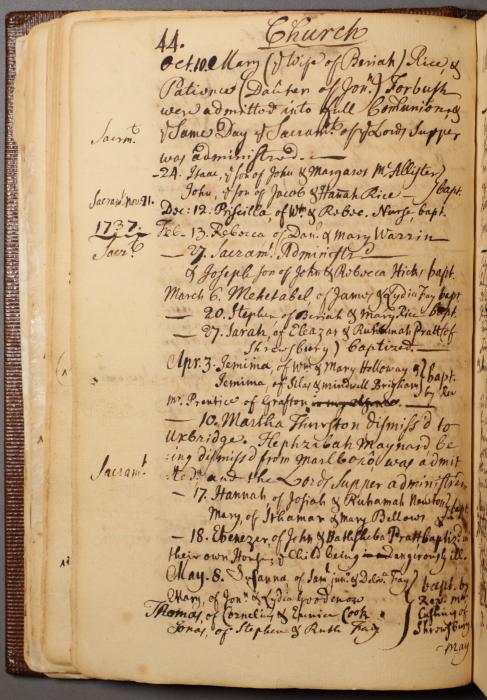 44. Church
Oct. 10. Mary (ye Wife of Beriah) Rice, &
Patience (Dauter of Jon.n) Forbush
were admitted into full Comunion, &
Sacrmt. ye Same Day ye Sacramt. of ye Lords Supper
was administred.
-24. Isaac, ye son of John & Margaret McAllister
John, ye son of Jacob & Hannah Rice } bapt.
Sacramt. Nov. 21.
Dec: 12. Priscilla of Wm. & Rebec. Nurse, bapt.
1737. Feb. 13. Rebecca of Danl. & Mary Warrin
Sacrt. — 27. Sacramt. Administrd
& Joseph son of John & Rebecca Hicks bapt.
March 6. Mehetabel of James & Lydia Fay bapt
— 20. Stephen of Beriah & Mary Rice bapt.
— 27. Sarah, of Eleazar & Ruhamah Pratt (of
Shrewsbury) baptized.
Apr. 3. Jemima of Wm. & Mary Holloway &
Jemima of Silas & Mindwell Brigham } bapt. by Rev
Mr. Prentice of Grafton
— 10. Martha Thurston dismiss'd to
Uxbridge. Hephzibah Maynard, be
ing dismiss'd from Marlboro, was admit
Sacramt. ted. and the Lords Supper administred
— 17. Hannah of Josiah & Ruhamah Newton
Mary, of Ithamar & Mary Bellows } bapt
— 18. Ebenezer, of John & Bathsheba Pratt baptiz'd in
their own House, ye Child being dangerously ill.
May. 8. Susanna, of Saml. junr. & Delivr. Fay
Mary, of Jon. & Lydia Goodenow
Thomas, of Cornelius & Eunice Cook
Jonas, of Stephen & Ruth Fay
} bapt. by
Revd. Mr.
Cushing of
Shrewsbury
May